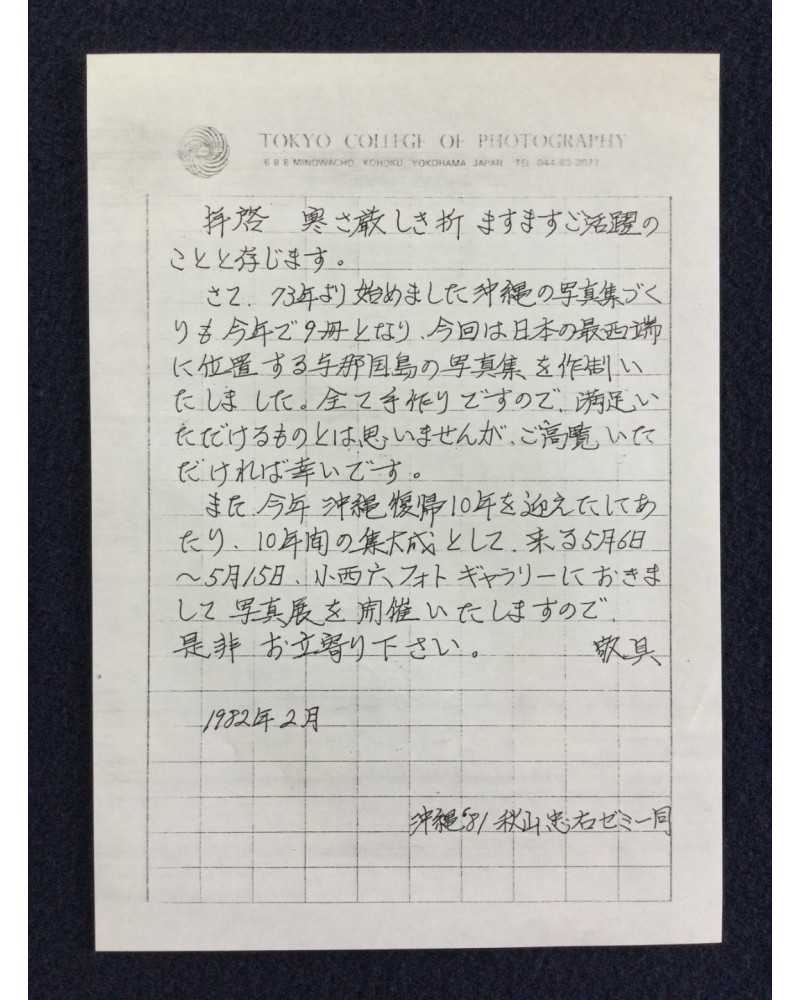 TOKYO COLLEGE OF PHOTOGRAPHY
6 8 8 MINOWACHO, KOHOKU, YOKOHAMA JAPAN TEL 044-63-2077
拝啓 寒さ厳しき折 ますますご活躍の
ことと存じます。
さて、73年より始めました沖縄の写真集づく
りも今年で9冊となり、今回は日本の最西端
に位置する与那国島の写真集を作制い
たしました。全て手作りですので、満足い
ただけるものとは思いませんが、ご高覧いた
だければ幸いです。
また、今年 沖縄復帰10年を迎えたしてあ
たり、10年間の集大成として、来る5月6日
〜5月15日、小西六フォトギャラリーにおきま
して 写真展を開催いたしますので、
是非 お立寄り下さい。 敬具
1982年2月
沖縄'81 秋山忠右ゼミ一同